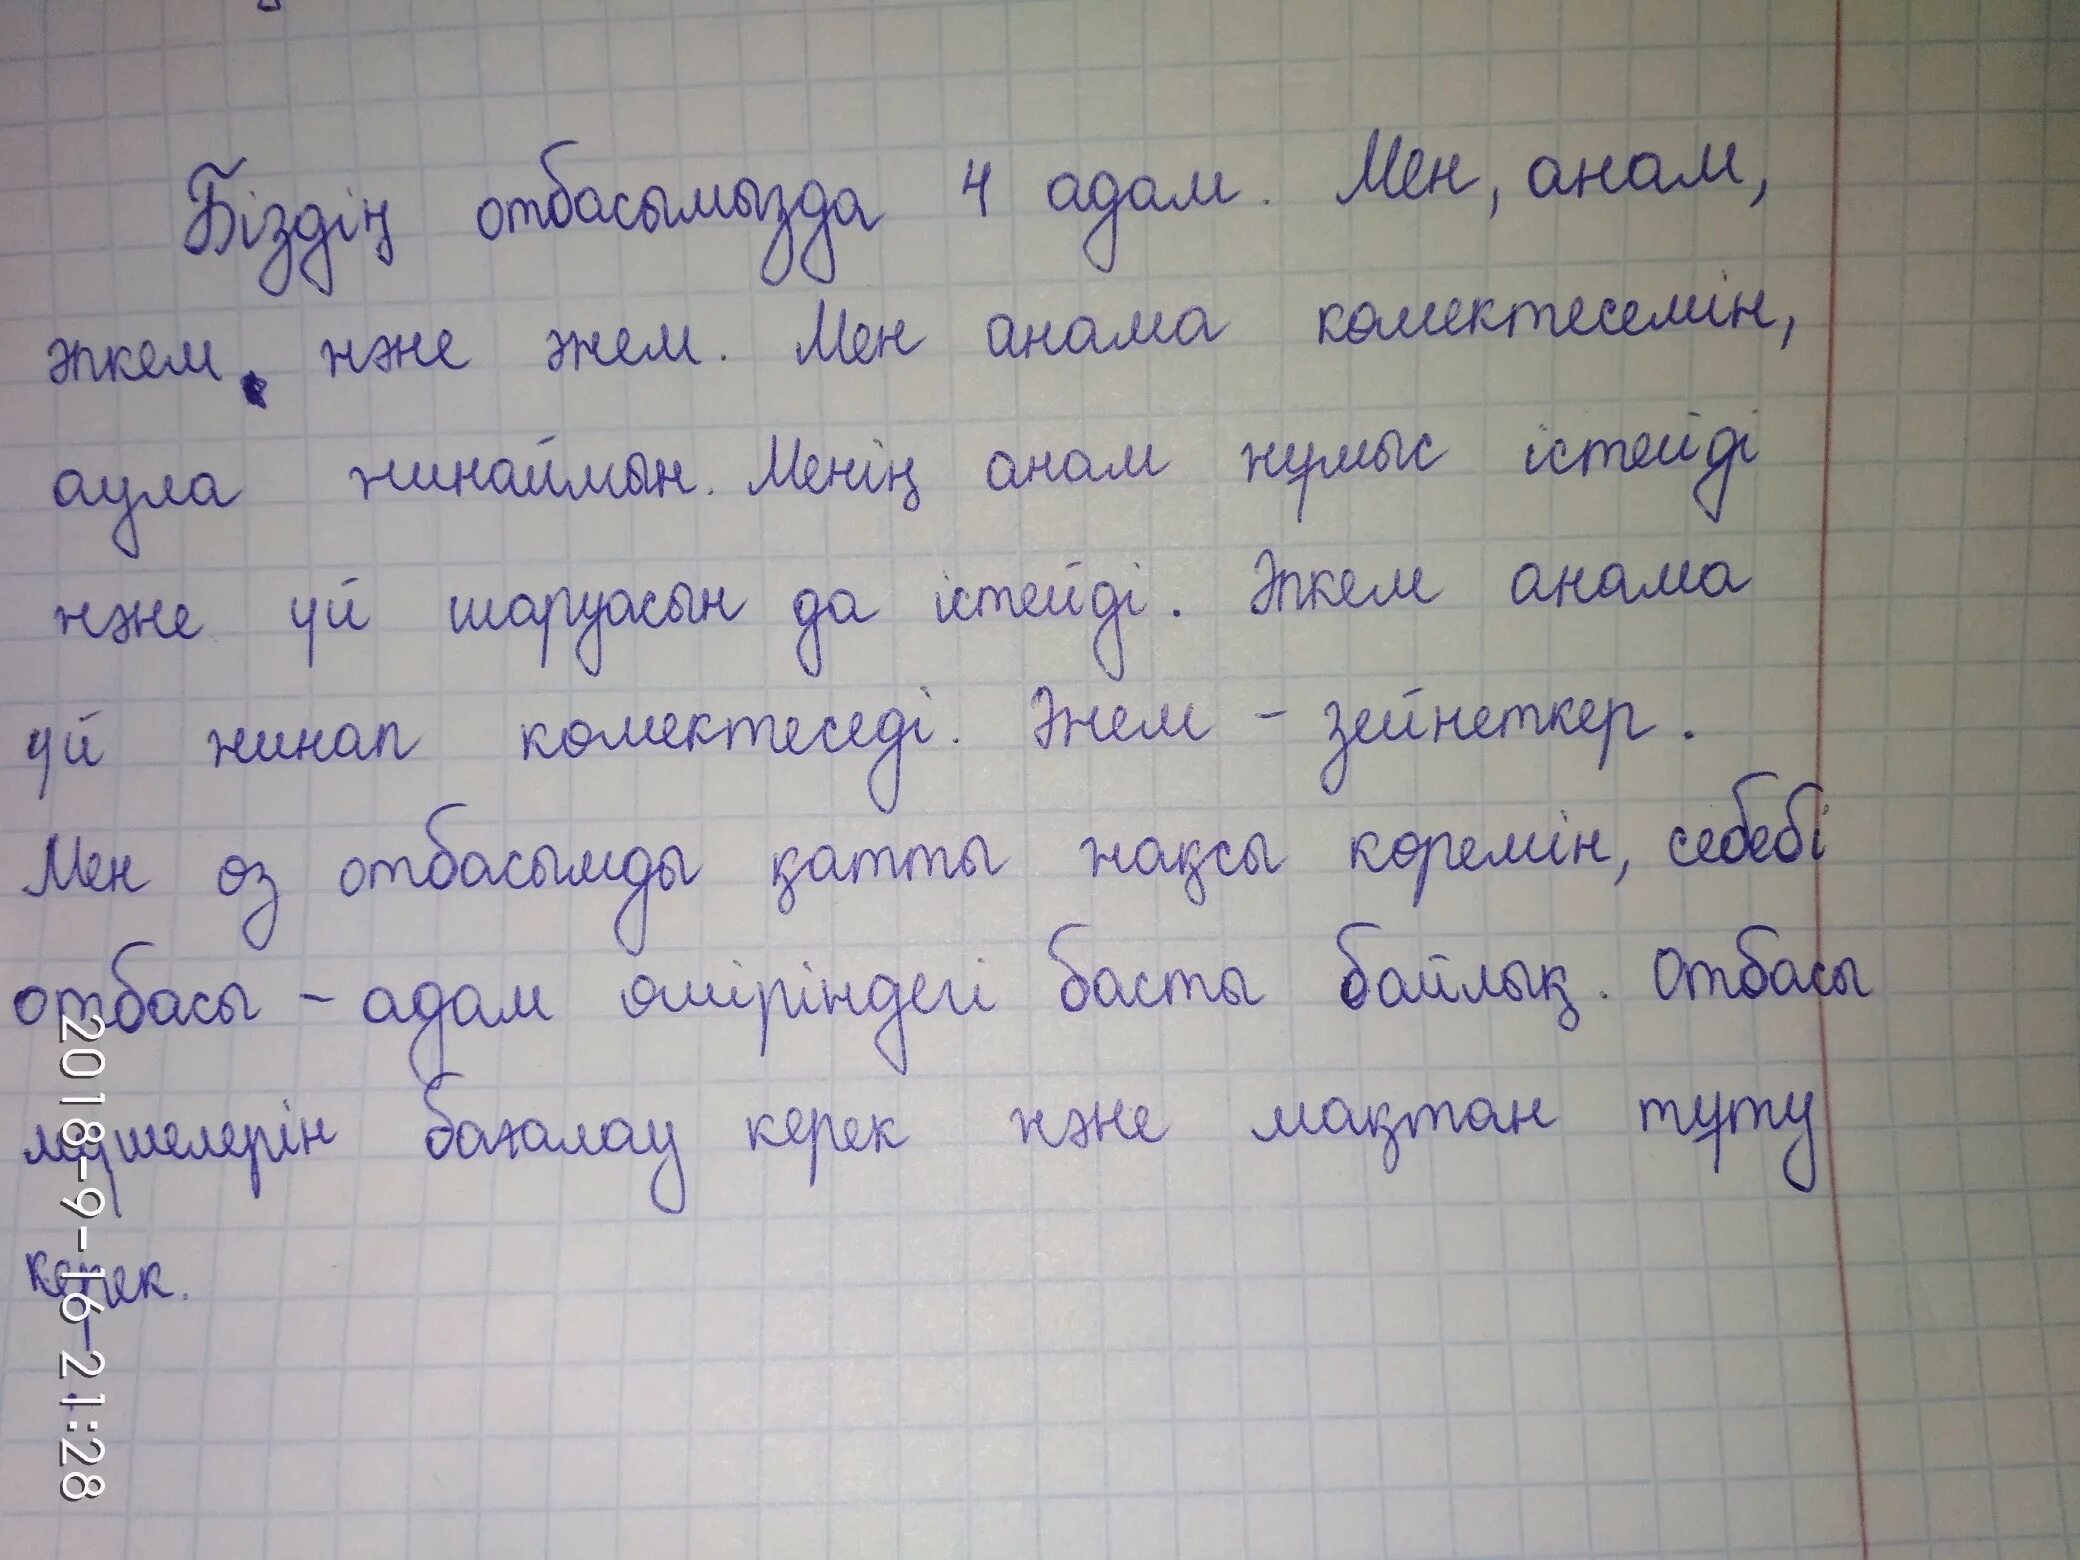 Біздің отбасымызда 4 адам. Мен, анам,
әпкем, және әжем. Мен анама көмектесемін,
аула жинаймын. Менің анам жұмыс істейді
және үй шаруасын да істейді. Әпкем анама
үй жинап көмектеседі. Әжем - зейнеткер.
Мен өз отбасымды қатты жақсы көремін, себебі
отбасы - адам өміріндегі басты байлық. Отбасы
мүшелерін бағалау керек және мақтан тұту
керек.
2018-9-16 21:28